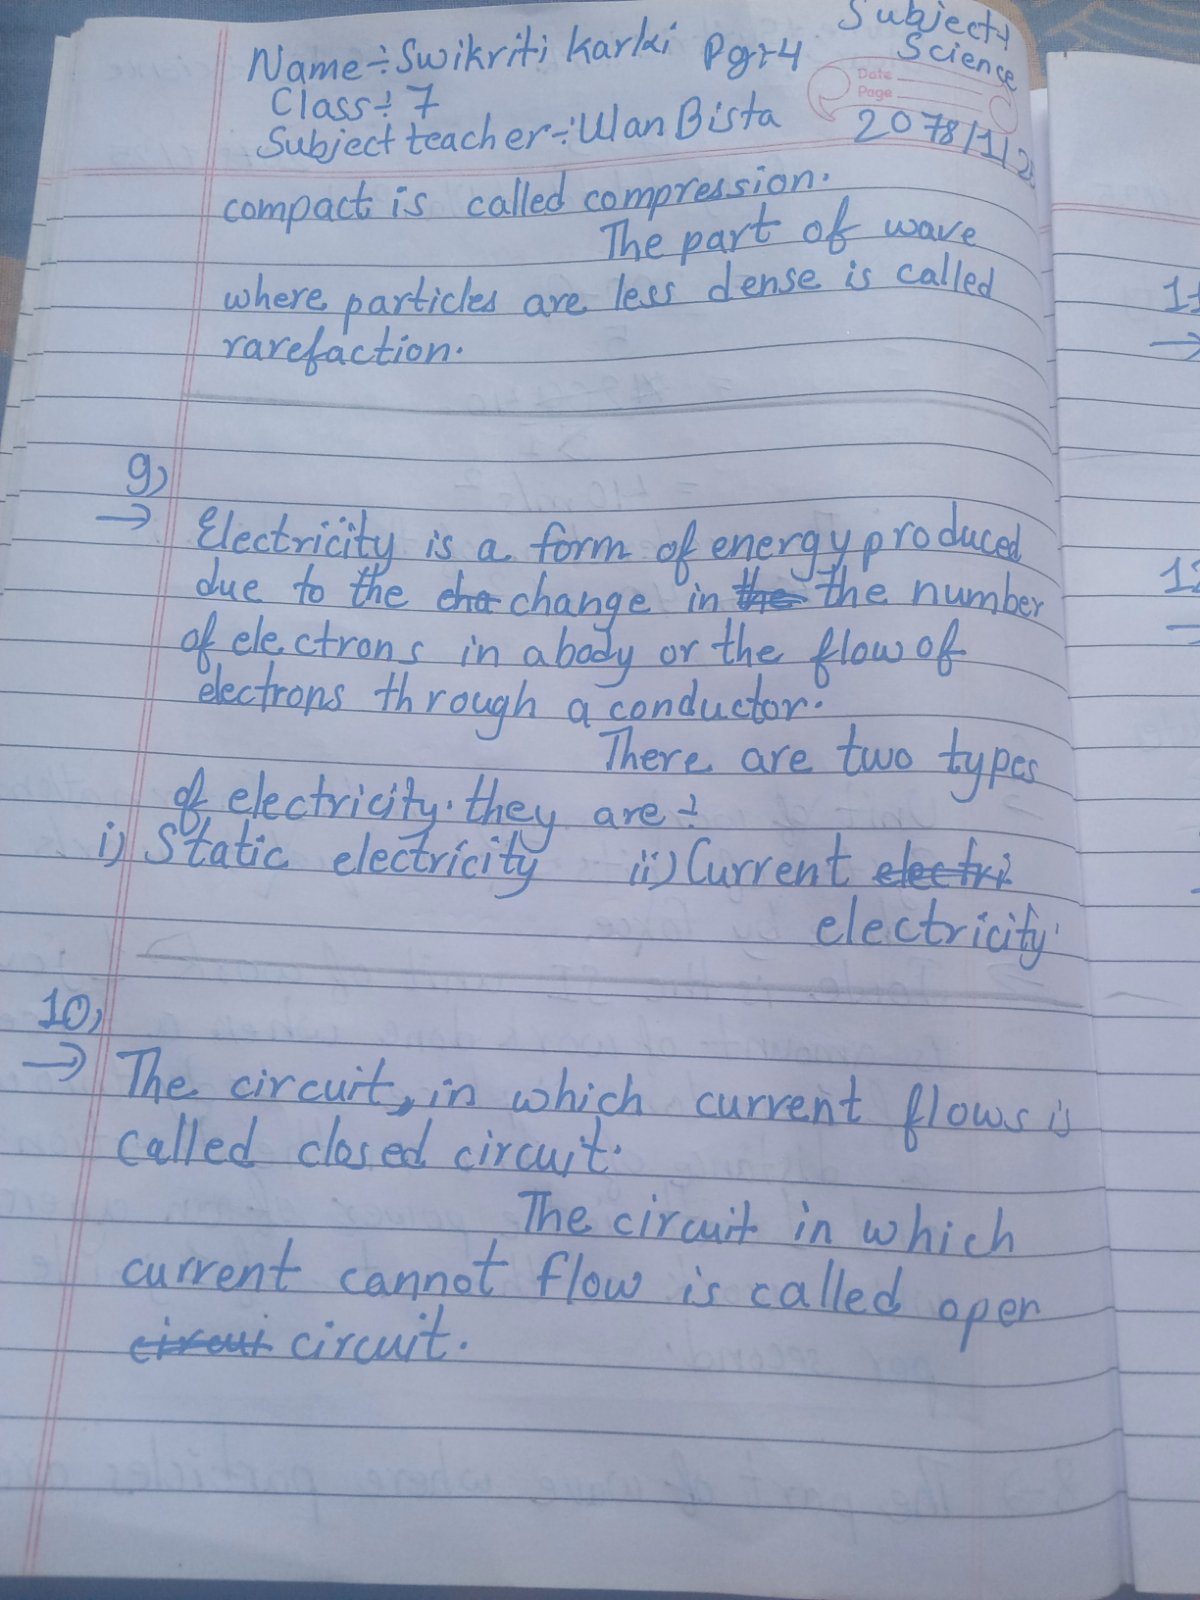 Name :- Swikriti Karki Pg :- 4 Subject :-
Science
Class :- 7
Date
Page
Subject teacher :- Ulan Bista 2078/1/2
compact is called compression.
The part of wave
where particles are less dense is called
rarefaction.
9)
→ Electricity is a form of energy produced
due to the cha change in the the number
of electrons in a body or the flow of
electrons through a conductor.
There are two types
of electricity. they are :-
i) Static electricity ii) Current electri
electricity
10)
→ The circuit, in which current flows is
called closed circuit.
The circuit in which
current cannot flow is called open
circui circuit.
11
→